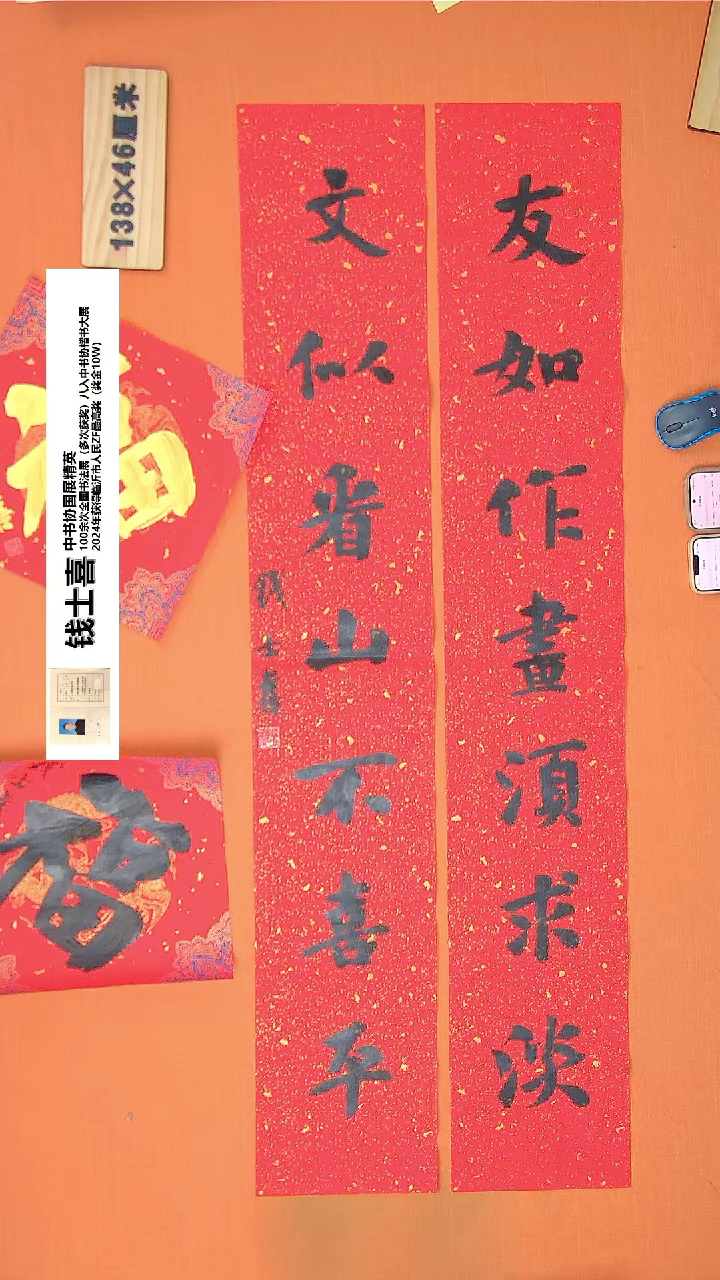 友如作畫須求淡
文似看山不喜平
钱士喜
138×46厘米
钱士喜
中书协国展精英
100余次全国书法展（多次获奖）八入中书协楷书大展
2024年获得临沂市人民ZF最高奖（奖金10W）
福
福